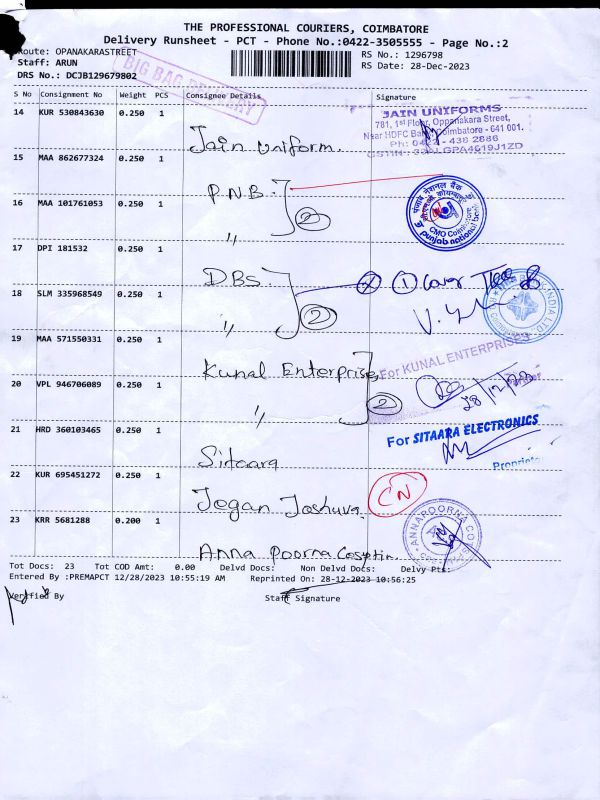 THE PROFESSIONAL COURIERS, COIMBATORE
Delivery Runsheet - PCT - Phone No.:0422-3505555 - Page No.:2
Route: OPANAKARASTREET
Staff: ARUN
DRS No.: DCJB129679802
BIG BAG DELIVERY
RS No.: 1296798
RS Date: 28-Dec-2023
S No Consignment No Weight PCS Consignee Details Signature
14 KUR 530843630 0.250 1
Jain Uniform.
JAIN UNIFORMS
781, 1st Floor, Oppanakara Street,
Near HDFC Bank, Coimbatore - 641 001.
Ph: 0422 - 438 2886
15 MAA 862677324 0.250 1
P.N.B.
16 MAA 101761053 0.250 1
" 2
CMO Coimbatore
punjab national bank
17 DPI 181532 0.250 1
DBS.
1 Cover
18 SLM 335968549 0.250 1
" 2
19 MAA 571550331 0.250 1
Kunal Enterprise,
For KUNAL ENTERPRISES
Partner
28/12/23
20 VPL 946706089 0.250 1
" 2
21 HRD 360103465 0.250 1
Sitaara
For SITAARA ELECTRONICS
Proprietor
22 KUR 695451272 0.250 1
Jegan Joshuva
CN
23 KRR 5681288 0.200 1
Anna Poorna
ANNAPOORNA
Tot Docs: 23 Tot COD Amt: 0.00 Delvd Docs: Non Delvd Docs: Delvy Pts:
Entered By :PREMAPCT 12/28/2023 10:55:19 AM Reprinted On: 28-12-2023 10:56:25
Verified By Staff Signature